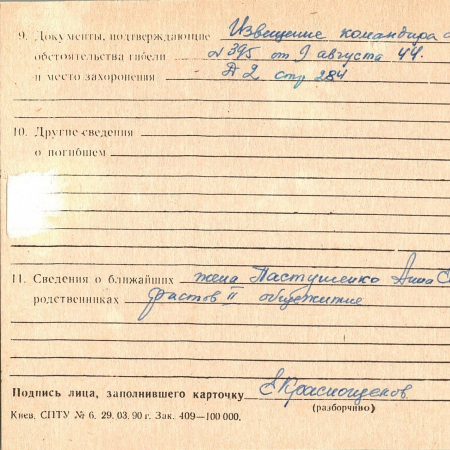 9. Документы, подтверждающие Извещение командира
обстоятельства гибели № 395 от 9 августа 44 г.
и место захоронения Д 2 стр 284
10. Другие сведения
о погибшем
11. Сведения о ближайших жена Пастушенко Анна
родственниках Фастов II общежитие
Подпись лица, заполнившего карточку
(разборчиво)
Киев. СПТУ № 6. 29. 03. 90 г. Зак. 409—100 000.